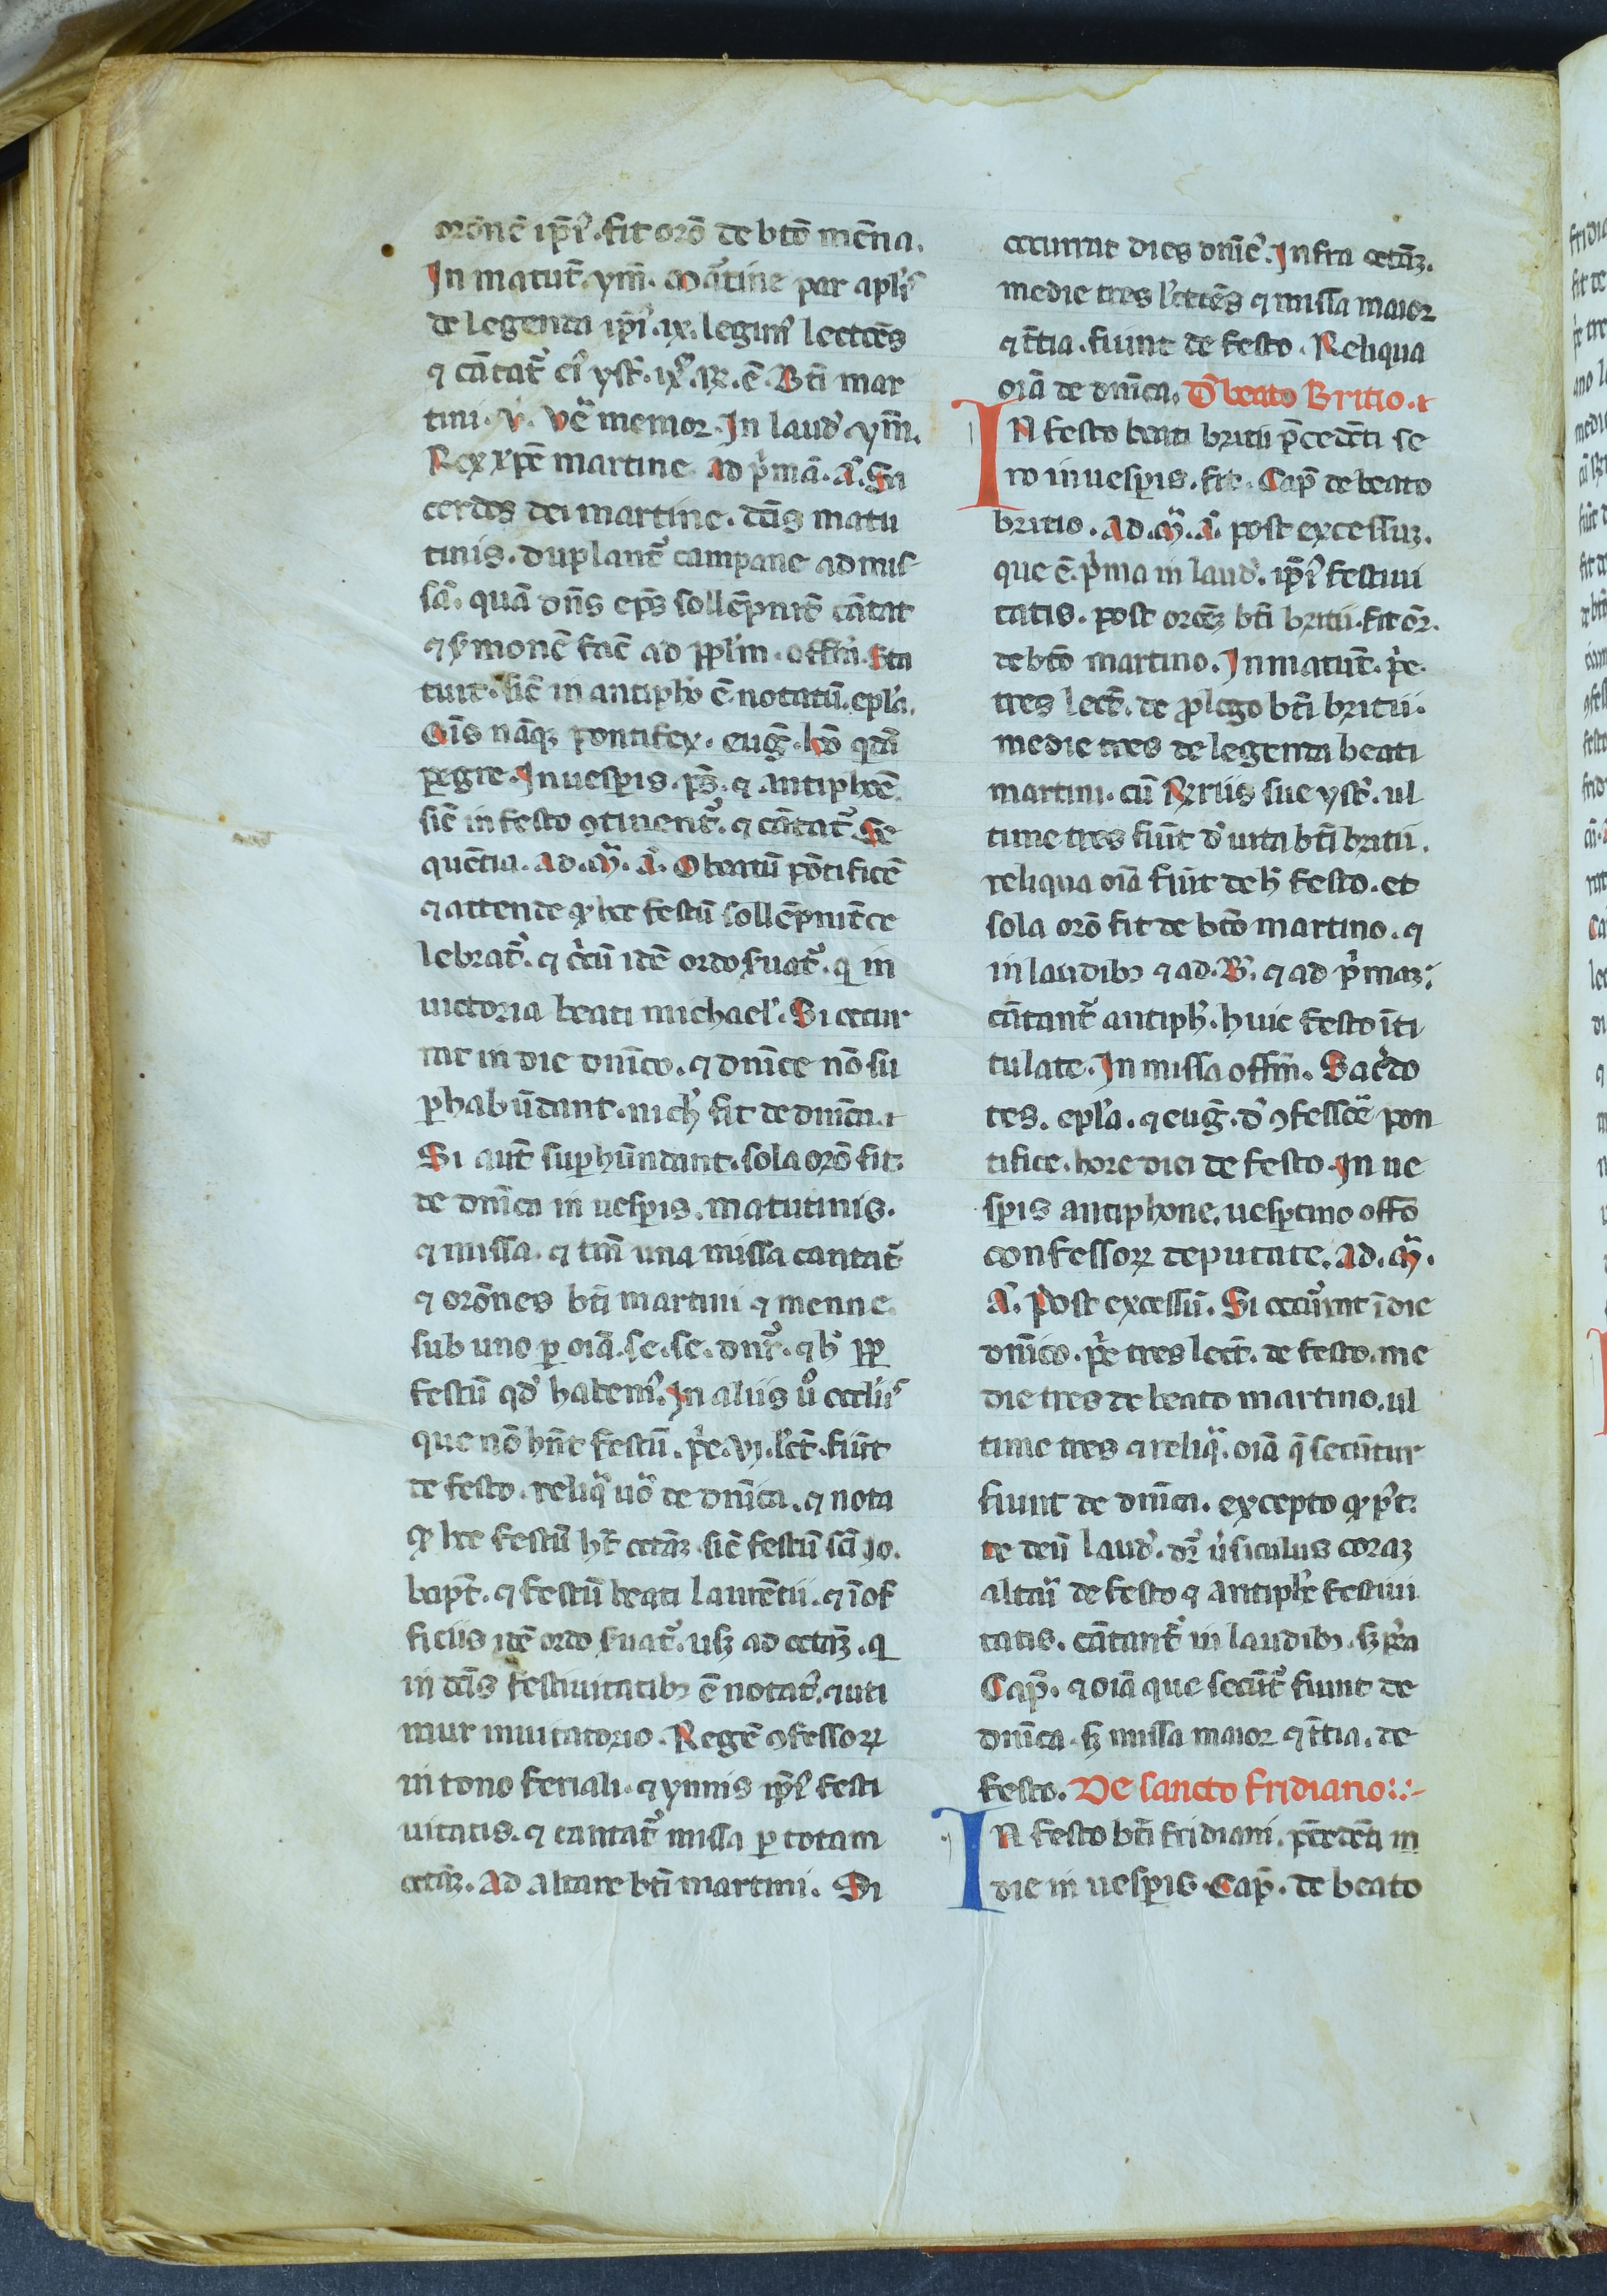 oronē ip̄i᷒. fit orō de btō mēna.
In matut̄. ym̄. Martine par apl'is
de legenda ip̄i᷒. ix. legim᷒ lectōēs
⁊ cātat᷑ ei᷒ yst᷑. ix᷒. R. ē. Bti mar
tini. V. Vē memor. In laud᷒. ym̄.
Rex xp̄e martine. Ad p̄mā. A᷒. Sa
cerdos dei martine. dcīs matu
tinis. duplant᷑ campane ad mis
sā. quā dn̄s ep̄s sollēpnit̄ cātat
⁊ ẜmonē fac̄ ad pplm. offm̄. Sta
tuit. sic̄ in antiph̄o ē notatū. epl'a.
Oīs nāqꝫ pontifex. eug̅. hō qdā
p̱egre. In uesp̱is. ps̄. ⁊ antiphōē
sic̄ in festo ꝯtinent᷑. ⁊ cātat᷑ Se
quētia. Ad. M̃. A᷒. O beatū pōtificē
⁊ attende ꝙ hoc festū sollēpnit̄ ce
lebrat᷑. ⁊ circū idē ordo ẜuat᷑. q̱ in
uictoria beati michael᷒. Si occur
rit in die dn̄ico. ⁊ dn̄ice nō su
p̱habūdant. nich᷒ fit de dn̄ica.
Si aut̄ sup̱hūndant. sola orō fit
de dn̄ica in uesp̱is. matutinis.
⁊ missa. ⁊ tm̄ una missa cantat᷑
⁊ orōnes bti martini ⁊ menne
sub uno p̱ oīa. se. se. dn̄r᷑. ⁊ h᷒ pp̱
festū qd᷒ habem᷒. In aliis ů eccl'iis
que nō hn̄t festū. p̄e. vj. lēct̄. fiūt
de festo. reliq̃ uō de dn̄ica. ⁊ nota
ꝙ hoc festū ht̄ octāꝫ. sic̄ festū scī Jo.
bapt̄. ⁊ festū beati laurētii. ⁊ ī of
ficiis idē ordo ẜuat᷑. usqꝫ ad octāꝫ. q̱
in dcīs festiuitatibꝫ ē notat᷒. ⁊ uti
mur inuitatorio. Regē ꝯfessoꝝ
in tono feriali. ⁊ ymnis ip̄i᷒ festi
uitatis. ⁊ cantat᷑ missa p̱ totam
octāꝫ. Ad altare bti martini. Si
occurrat dies dn̄ic᷒. Infra octāꝫ.
medie tres l'ectōēs ⁊ missa maior
⁊ t̄tia. fiunt de festo. Reliqua
oīa de dn̄ica. D᷒ beato Britio.
IN festo beati britii p̄cedēti se
ro in uesp̱is. fit. Cap̄ de beato
britio. Ad. M̃. A᷒. post excessuꝫ.
que ē. p̄ma in laud᷒. ip̄i᷒ festiui
tatis. post orōeꝫ bti britii. fit ōr.
de btō martino. In matut̄. p̄e.
tres lect̄. de ꝓlogo bti britii.
medie tres de legenda beati
martini. cū Rriis sue yst᷑. ul
time tres fiūt d᷒ uita bti britii.
reliqua oīa fiūt de h̄ festo. et
sola orō fit de btō martino. ⁊
in laudibꝫ ⁊ ad. B᷒. ⁊ ad p̄maꝫ.
cātant᷑ antiph᷒. huic festo īti
tulate. In missa offm̄. Sac̄do
tes. epl'a. ⁊ eug̅. d᷒ ꝯfessōē pon
tifice. hore diei de festo. In ue
sp̱is antiphone. uesp̱tino offō
confessoꝝ deputate. Ad. M̃.
A᷒. Post excessū. Si occūrit ī die
dn̄ico. p̄e tres lect̄. de festo. me
die tres de beato martino. ul
time tres ⁊ reliq̃. oīa q̄ secūtur
fiunt de dn̄ica. excepto ꝙ p᷒t.
te deū laud᷒. dr̄ ůsiculus coraꝫ
altari de festo ⁊ antiph̄e festiui
tatis. cātant᷑ in laudibꝫ. ꝫ p̄ea
Cap̄. ⁊ oīa que secūt᷑ fiunt de
dn̄ica. ꝫ missa maior ⁊ t̄tia. de
festo. De sancto fridiano:.:-
IN festo bti fridiani. p̄cedēti in
die in uesp̱is. Cap̄. de beato